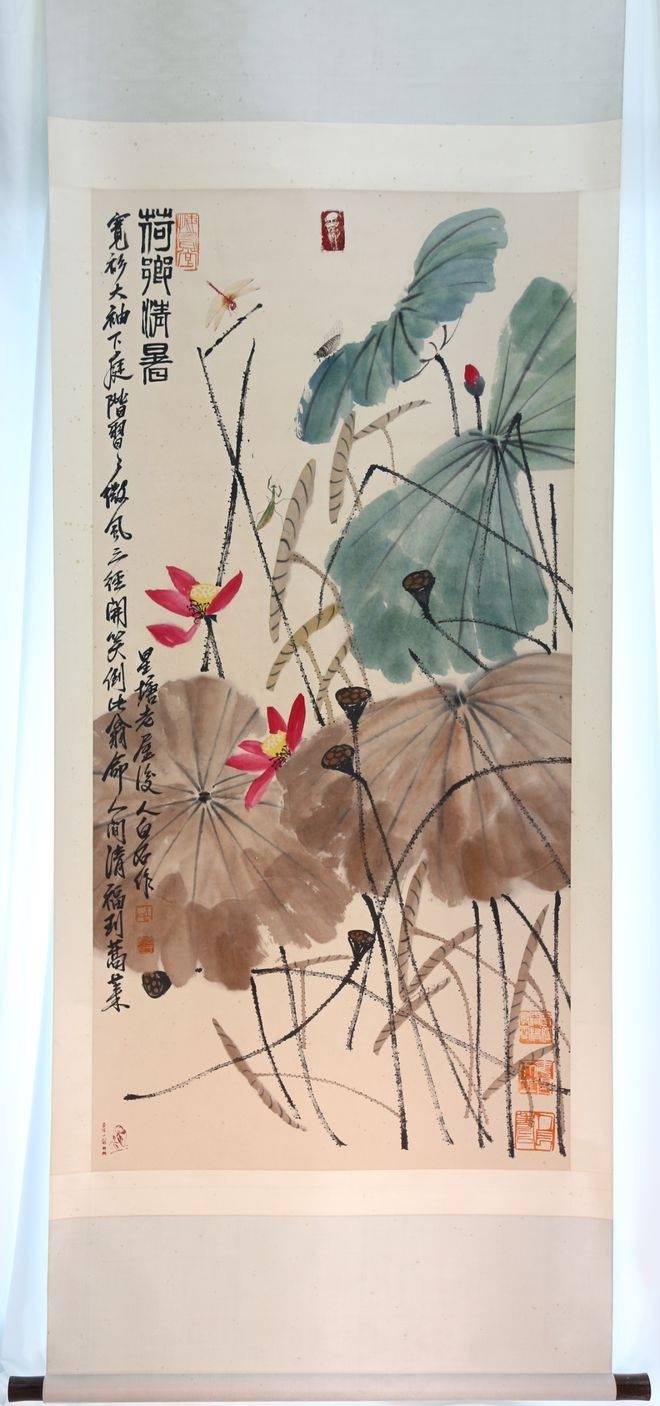 荷鄉清暑
寬衫大袖下庭階習〻微風三徑開笑倒此翁命人間清福到蒿萊
星塘老屋後人白石作